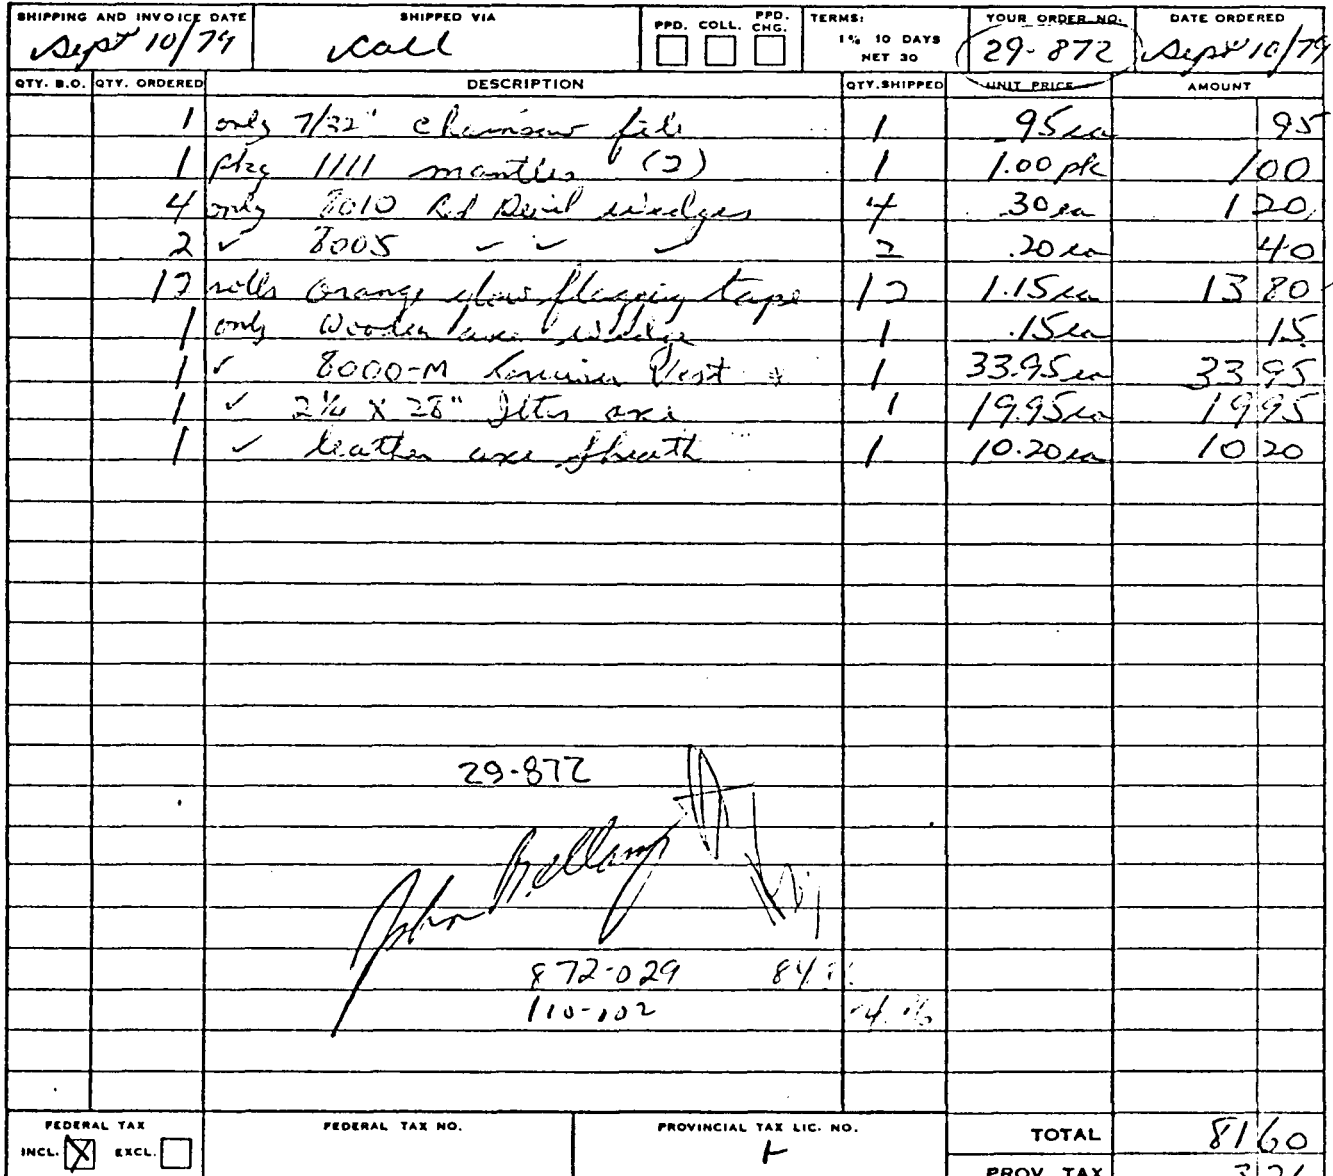 SHIPPING AND INVOICE DATE SHIPPED VIA PPD. COLL. PPD. CHG. TERMS: YOUR ORDER NO. DATE ORDERED
Sept 10/79 call 1% 10 DAYS NET 30 29-872 Sept 10/79
QTY. B.O. QTY. ORDERED DESCRIPTION QTY. SHIPPED UNIT PRICE AMOUNT
1 only 7/32" chainsaw file 1 .95 ea 95
1 pkg 1111 mantles (2) 1 1.00 pk 1 00
4 only 8010 Red Devil wedges 4 .30 ea 1 20
2 ✓ 8005 ✓ ✓ ✓ 2 .20 ea 40
12 rolls Orange glow flagging tape 12 1.15 ea 13 80
1 only Wooden axe wedge 1 .15 ea 15
1 ✓ 8000-M Cruiser Vest 1 33.95 ea 33 95
1 ✓ 2¼ X 28" axe 1 19.95 ea 19 95
1 ✓ leather axe sheath 1 10.20 ea 10 20
29-872
John Bellamy
872-029 84
110-102
FEDERAL TAX FEDERAL TAX NO. PROVINCIAL TAX LIC. NO. TOTAL 81 60
INCL. X EXCL.
PROV. TAX 3 26